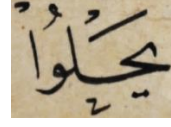 يَحْلُوْا